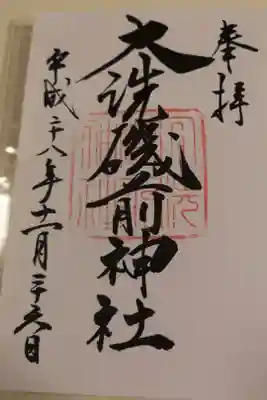 奉拝
大洗磯前神社
平成二十八年十一月二十六日